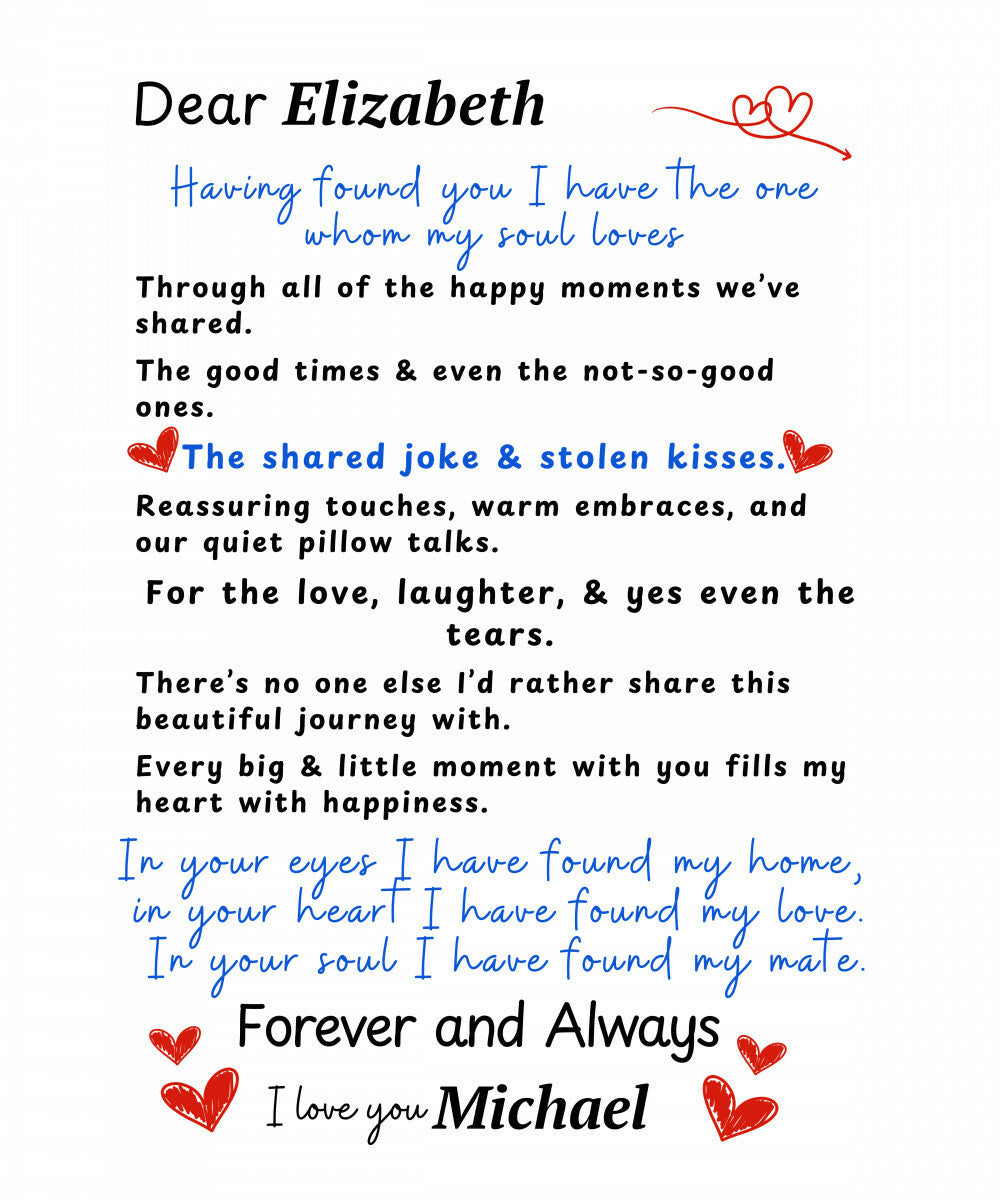 Dear Elizabeth
Having found you I have the one
whom my soul loves
Through all of the happy moments we've
shared.
The good times & even the not-so-good
ones.
The shared joke & stolen kisses.
Reassuring touches, warm embraces, and
our quiet pillow talks.
For the love, laughter, & yes even the
tears.
There's no one else I'd rather share this
beautiful journey with.
Every big & little moment with you fills my
heart with happiness.
In your eyes I have found my home,
in your heart I have found my love.
In your soul I have found my mate.
Forever and Always
I love you Michael